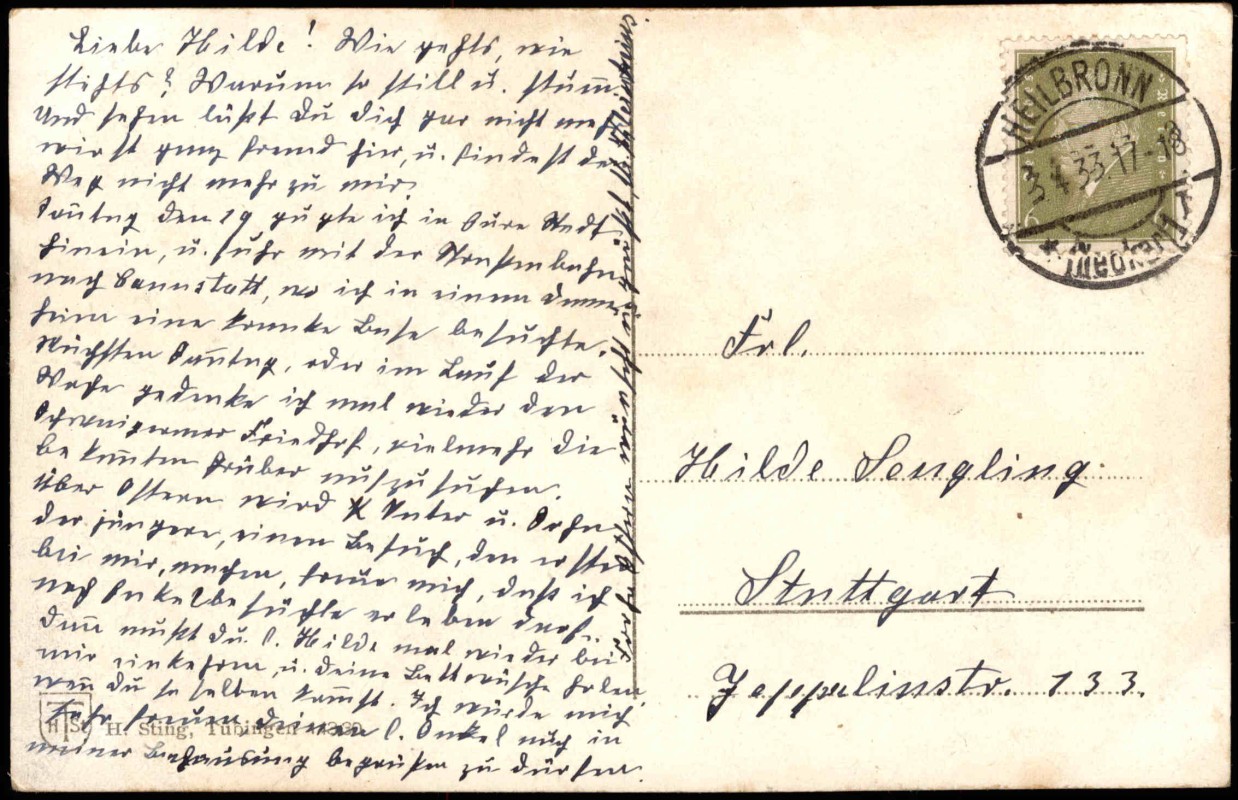 Liebe Hilde! Wie gehts, wie
stehts? Warum so still u. stumm
Und sehen läßt Du Dich gar nicht mehr
wirst ganz fremd hier, u. findest den
Weg nicht mehr zu mir.
Sonntag den 19 gugte ich in Eure Stadt
hinein, u. fuhr mit der Straßenbahn
nach Cannstatt, wo ich in einem
heim eine kranke Base besuchte.
Nächsten Sonntag, oder im Lauf der
Woche gedenke ich mal wieder den
Friedhof, vielmehr die
bekannten Gräber aufzusuchen.
Über Ostern wird Vater u. Sohn
der jüngere, einen Besuch, den ersten
bei mir, machen, freue mich, daß ich
noch Enkelbesüchle erleben darf.
Dann mußt Du l. Hilde mal wieder bei
mir einkehren, u. deine Bettwäsche holen
wenn Du so selten kommst. Ich würde mich
sehr freuen, deinen l. Onkel auch in
meiner Behausung begrüßen zu dürfen.
Frohe Ostern
H. Sting, Tübingen
HEILBRONN
3.4.33.17-18
Frl.
Hilde Sengling
Stuttgart
Zeppelinstr. 133.